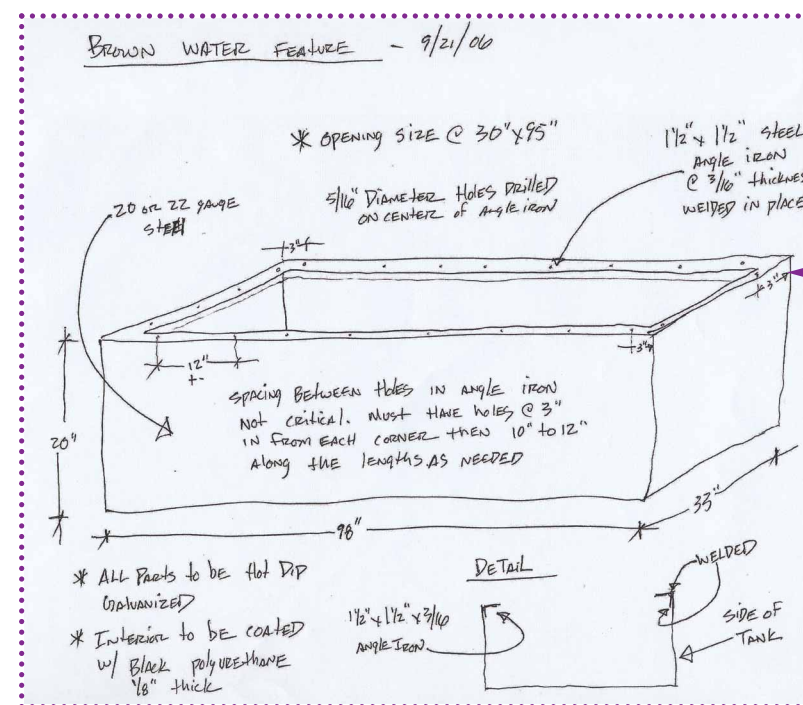 BROWN WATER FEATURE - 9/21/06
* OPENING SIZE @ 30" x 95"
1 1/2" x 1 1/2" STEEL
ANGLE IRON
@ 3/16" THICKNES
WELDED IN PLACE
5/16" DIAMETER HOLES DRILLED
ON CENTER OF ANGLE IRON
20 OR 22 GAUGE
STEEL
3"
3"
3"
12"
+-
SPACING BETWEEN HOLES IN ANGLE IRON
NOT CRITICAL. MUST HAVE HOLES @ 3"
IN FROM EACH CORNER THEN 10" TO 12"
ALONG THE LENGTHS AS NEEDED
20"
98"
33"
* ALL PARTS TO BE HOT DIP
GALVANIZED
* INTERIOR TO BE COATED
W/ BLACK POLYURETHANE
1/8" THICK
DETAIL
1 1/2" x 1 1/2" x 3/16
ANGLE IRON
WELDED
SIDE OF
TANK